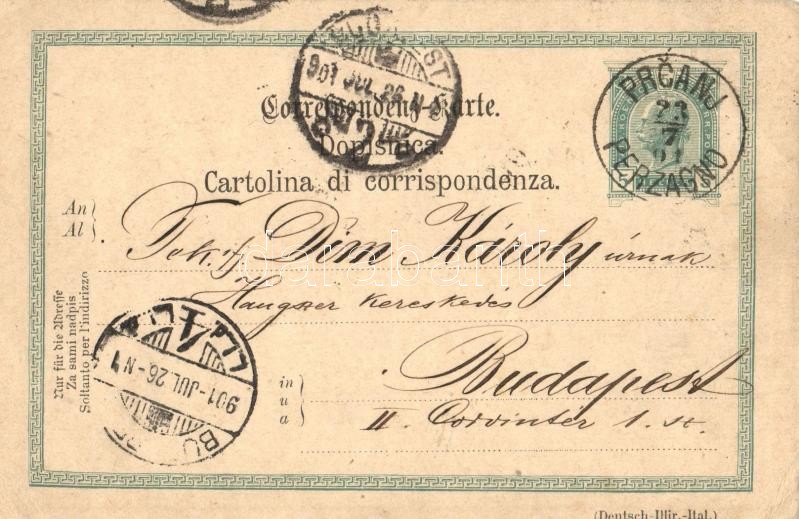 Correspondenz-Karte.
Dopisnica.
Cartolina di corrispondenza.
PRČANJ
23
7
01
PERZAGNO
901 JUL 26 N
An
Al
Tek. Dim Károly úrnak
Hangszer kereskedés
in
u
a
Budapest
II. Corvintér 1. sz.
Nur für die Adresse
Za sami nadpis
Soltanto per l'indirizzo
901-JUL 26-N1
BU
(Deutsch-Illir.-Ital.)
darabanth